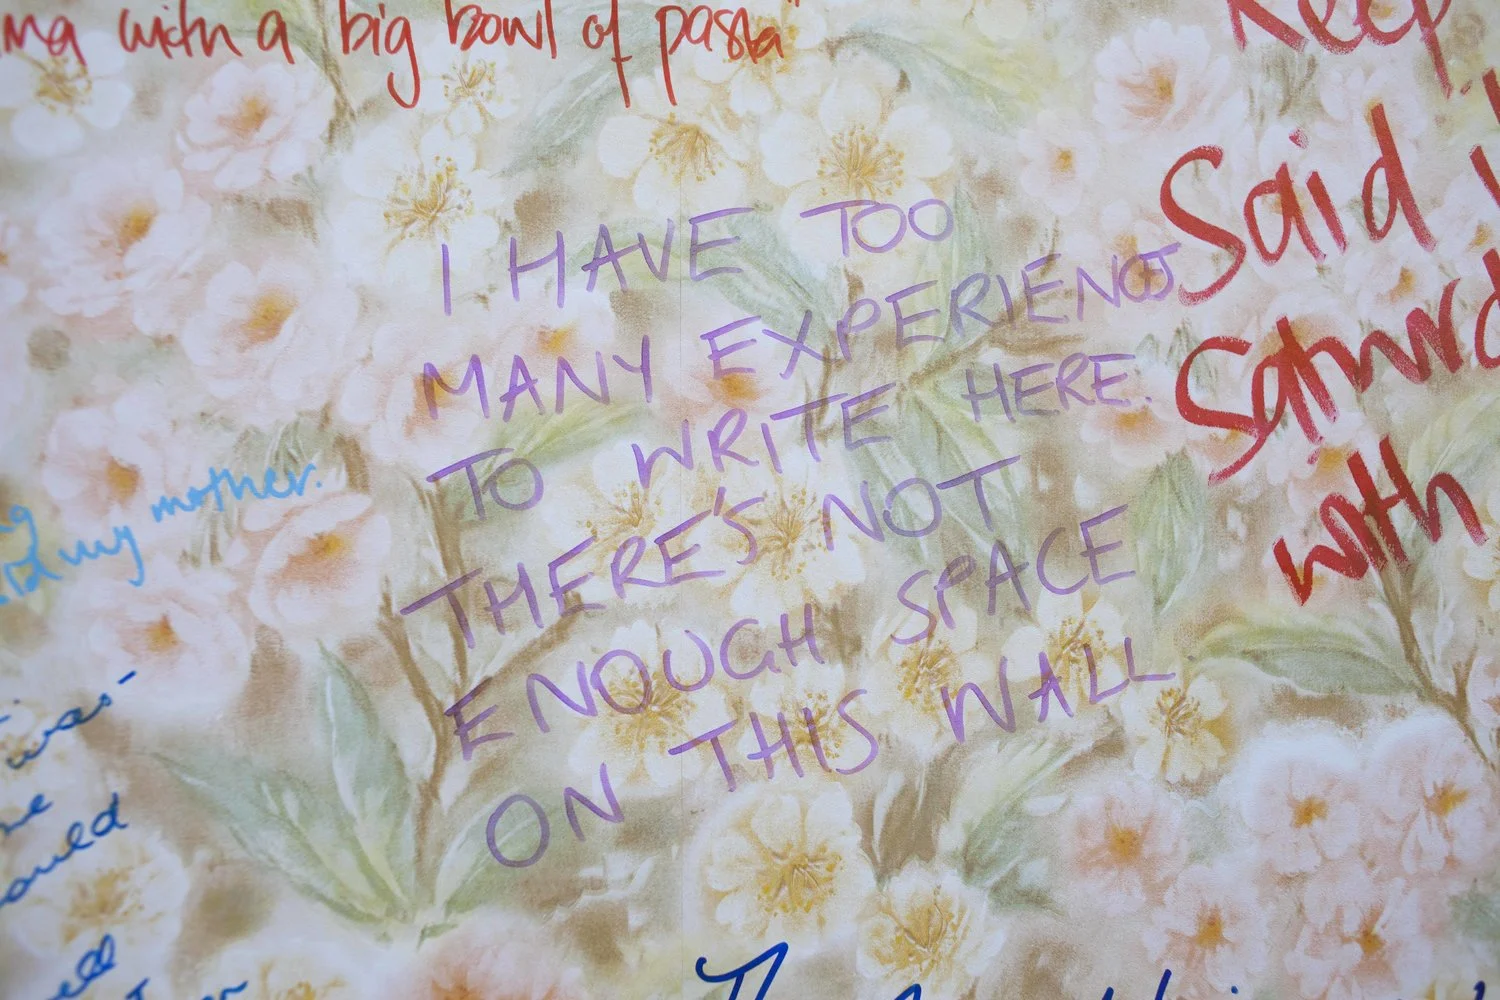 with a big bowl of pasta"
Keep
Said
with
I HAVE TOO
MANY EXPERIENCES
TO WRITE HERE.
THERE'S NOT
ENOUGH SPACE
ON THIS WALL
my mother.
was-